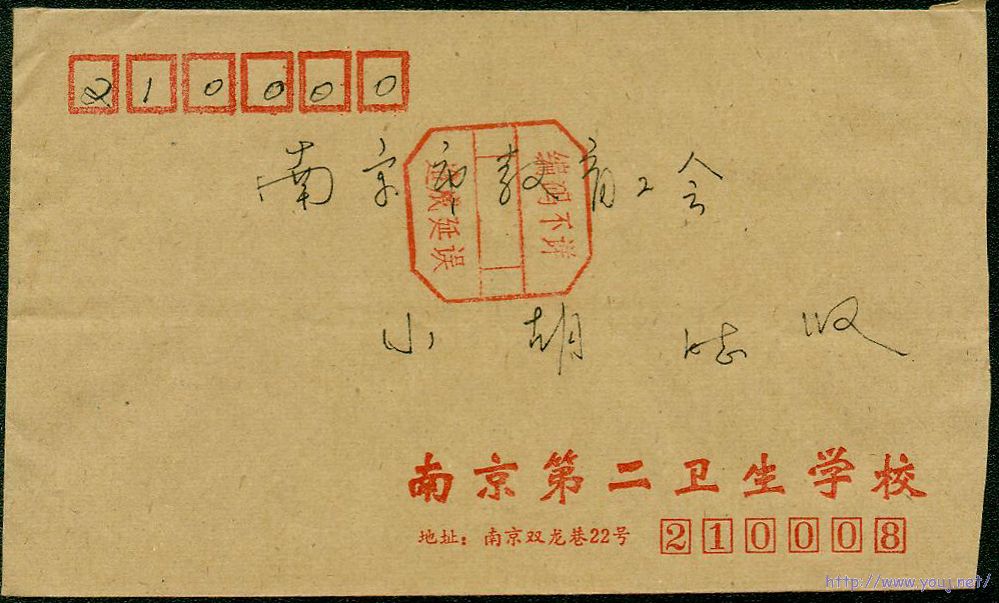 210000
南京市教育工会
编码不详
递戳延误
小胡 同志 收
南京第二卫生学校
地址：南京双龙巷22号 210008
http://www.youj.net/